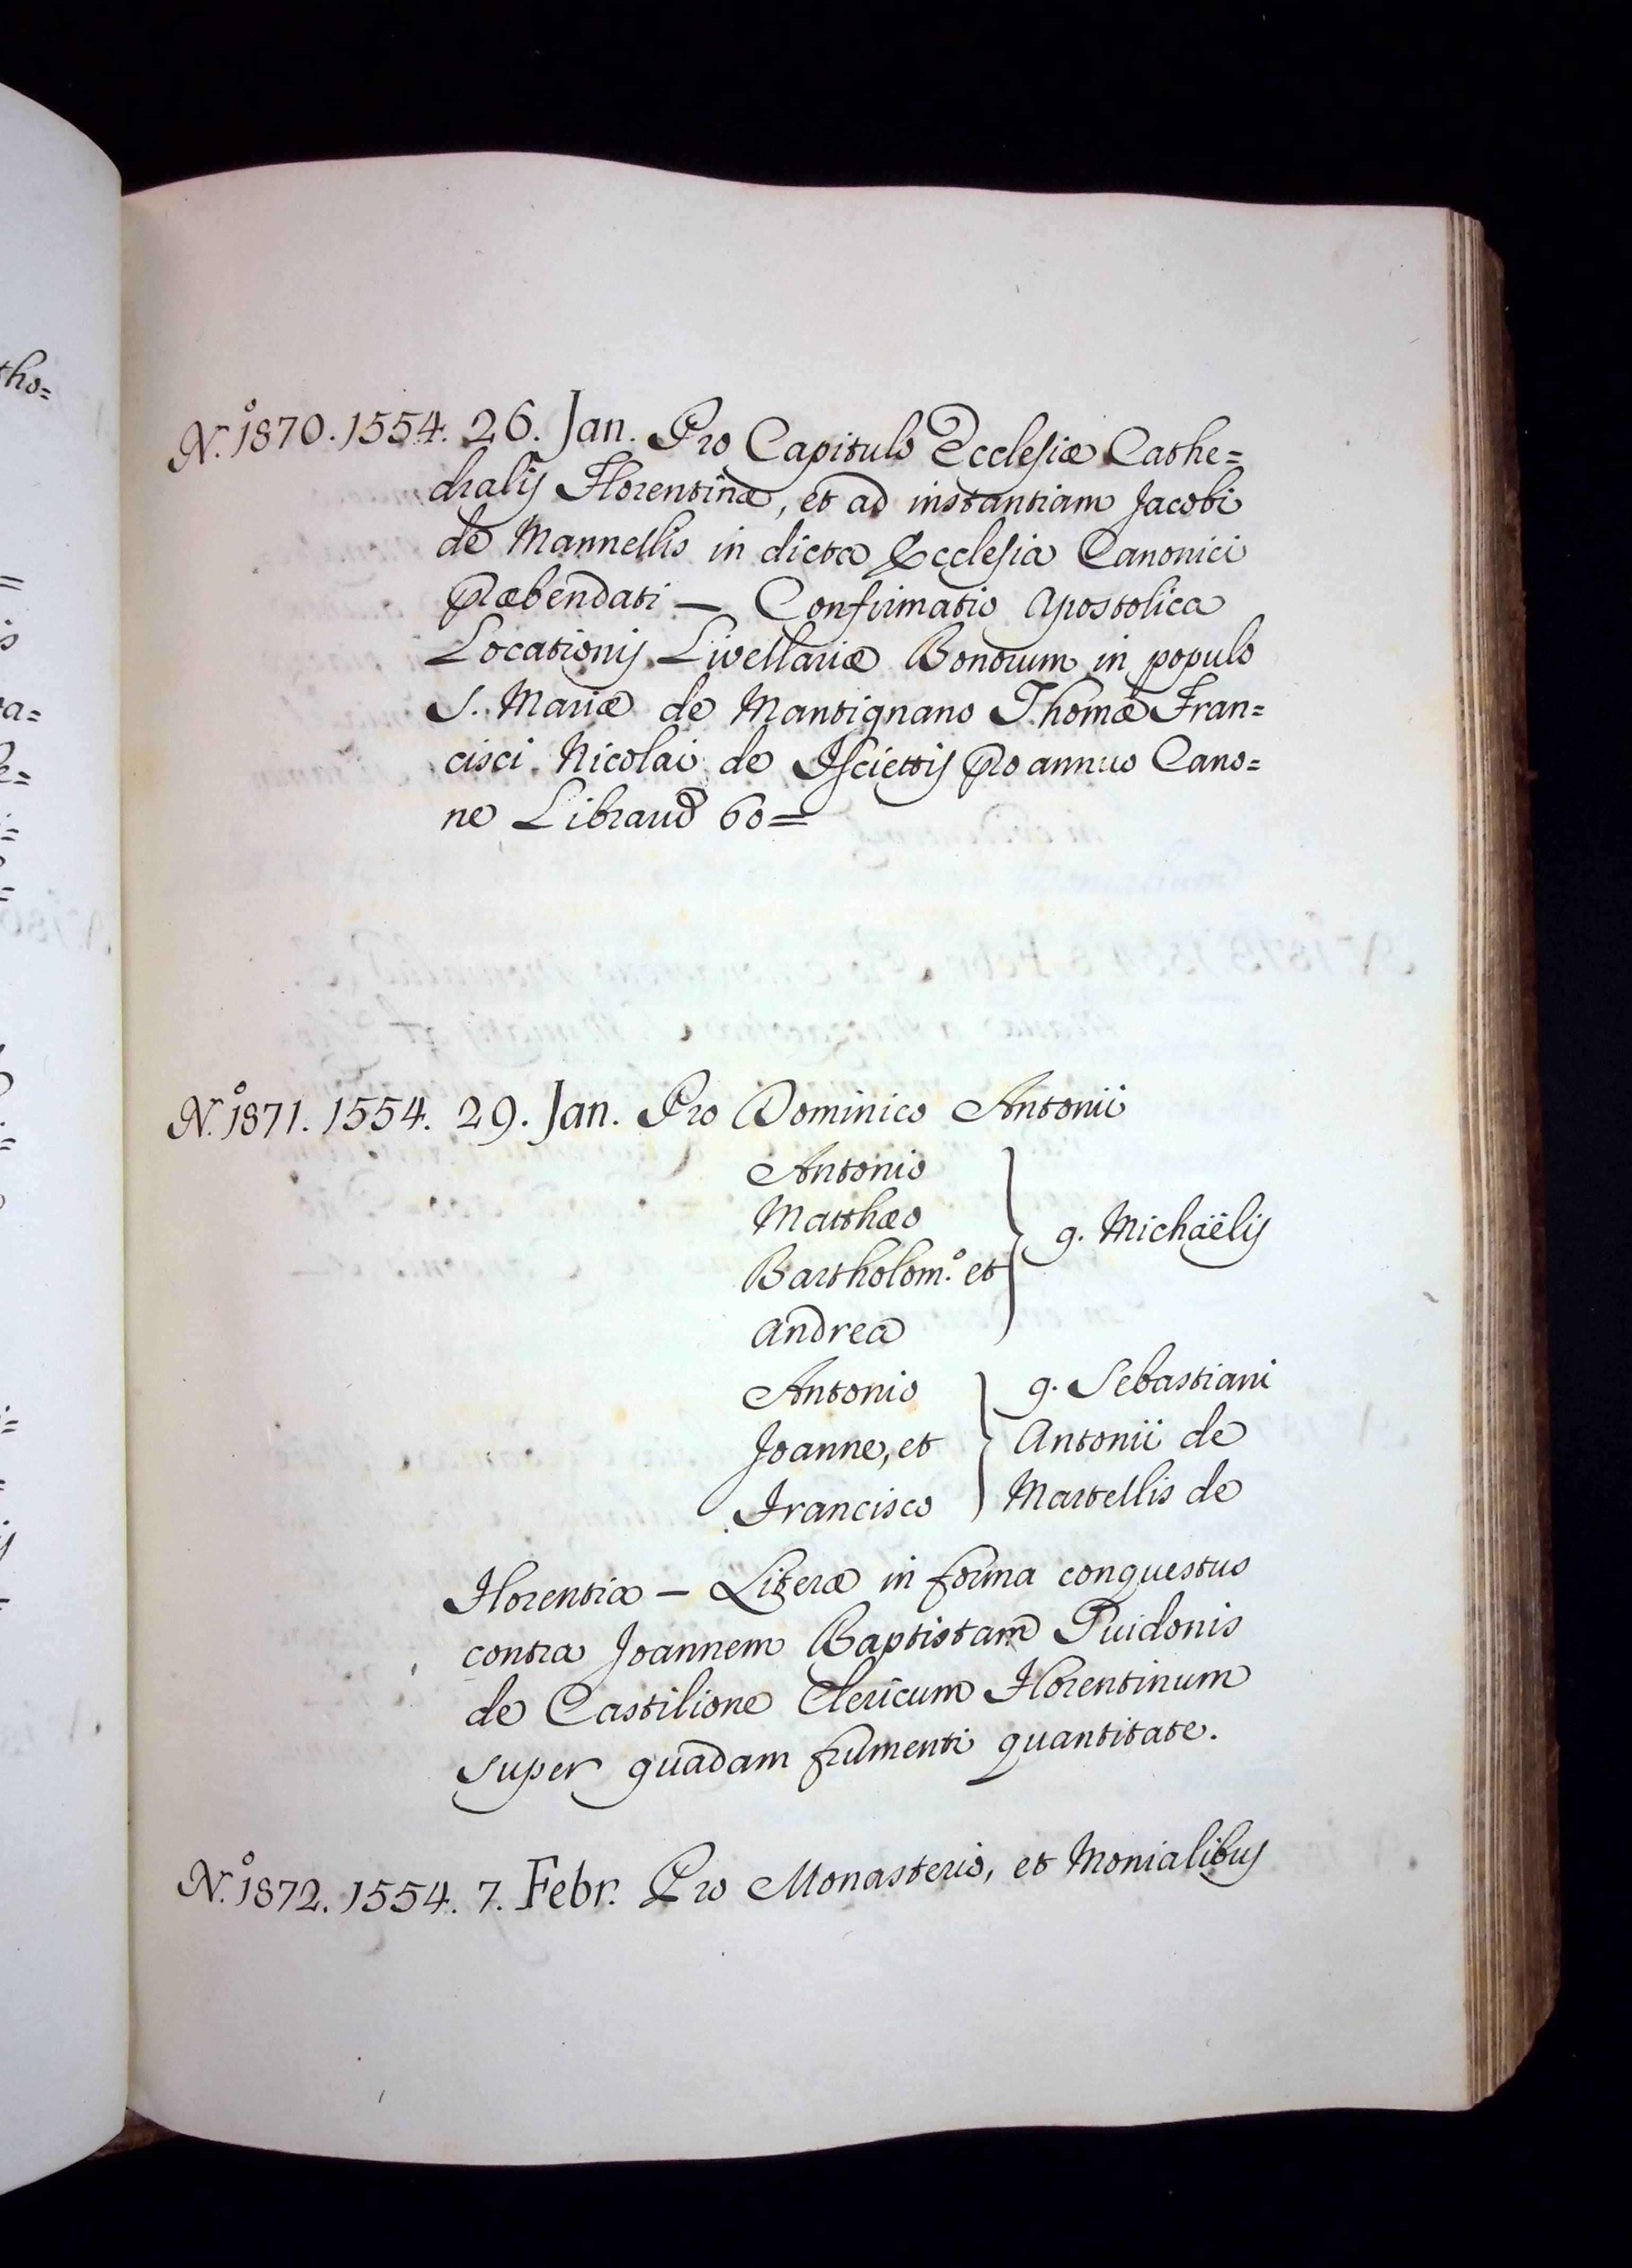 N.º 1870. 1554. 26. Jan. Pro Capitulo Ecclesiæ Cathe=
dralis Florentinæ, et ad instantiam Jacobi
de Mannellis in dicta Ecclesia Canonici
Præbendati — Confirmatio Apostolica
Locationis Livellariæ Bonorum in populo
S. Mariæ de Mantignano Thomæ Fran=
cisci Nicolai de Isciettis pro annuo Cano=
ne Librarum 60=
N.º 1871. 1554. 29. Jan. Pro Dominico Antonii
Antonio
Matthæo
Bartholom.º et
Andrea
q. Michaëlis
Antonio
Joanne, et
Francisco
q. Sebastiani
Antonii de
Martellis de
Florentia — Literæ in forma conquestus
contra Joannem Baptistam Guidonis
de Castilione Clericum Florentinum
super quadam frumenti quantitate.
N.º 1872. 1554. 7. Febr. Pro Monasterio, et Monialibus